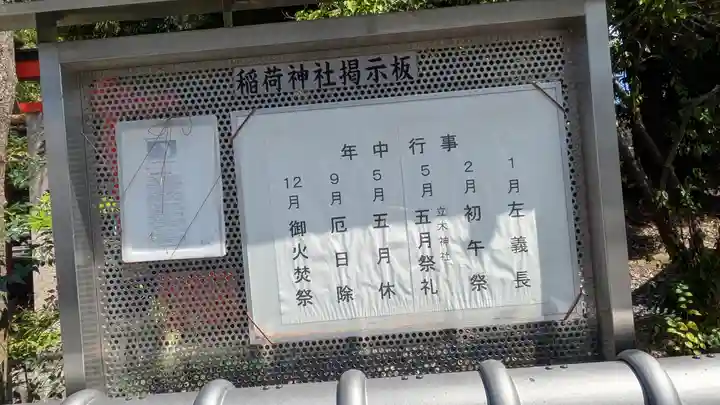 稲荷神社掲示板
年中行事
1月左義長
2月初午祭
立木神社
5月五月祭礼
5月五月休
9月厄日除
12月御火焚祭